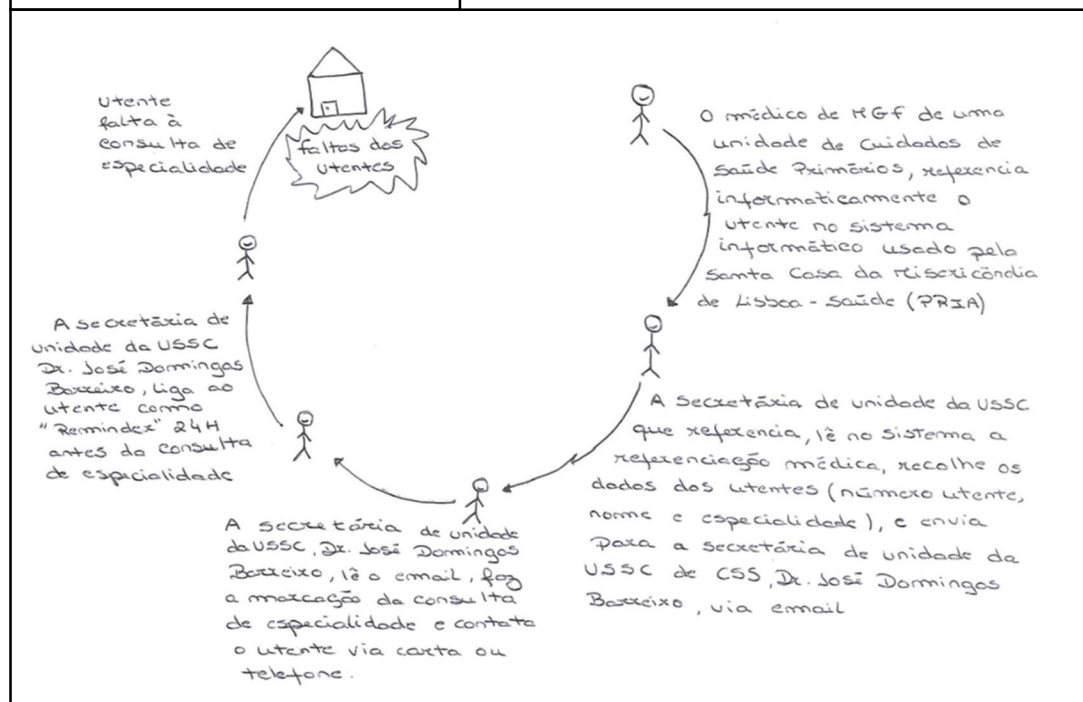 O médico de MGF de uma
unidade de Cuidados de
Saúde Primários, referencia
informaticamente o
utente no sistema
informático usado pela
Santa Casa da Misericórdia
de Lisboa - Saúde (PRIA)
A secretária de unidade da USSC
que referencia, lê no sistema a
referenciação médica, recolhe os
dados dos utentes (número utente,
nome e especialidade), e envia
para a secretária de unidade da
USSC de CSS, Dr. José Domingos
Barreiro, via email
A secretária de unidade
da USSC, Dr. José Domingos
Barreiro, lê o email, faz
a marcação da consulta
de especialidade e contata
o utente via carta ou
telefone.
A secretária de
unidade da USSC
Dr. José Domingos
Barreiro, liga ao
utente como
"Reminder" 24H
antes da consulta
de especialidade
utente
falta à
consulta de
especialidade
faltas dos
utentes